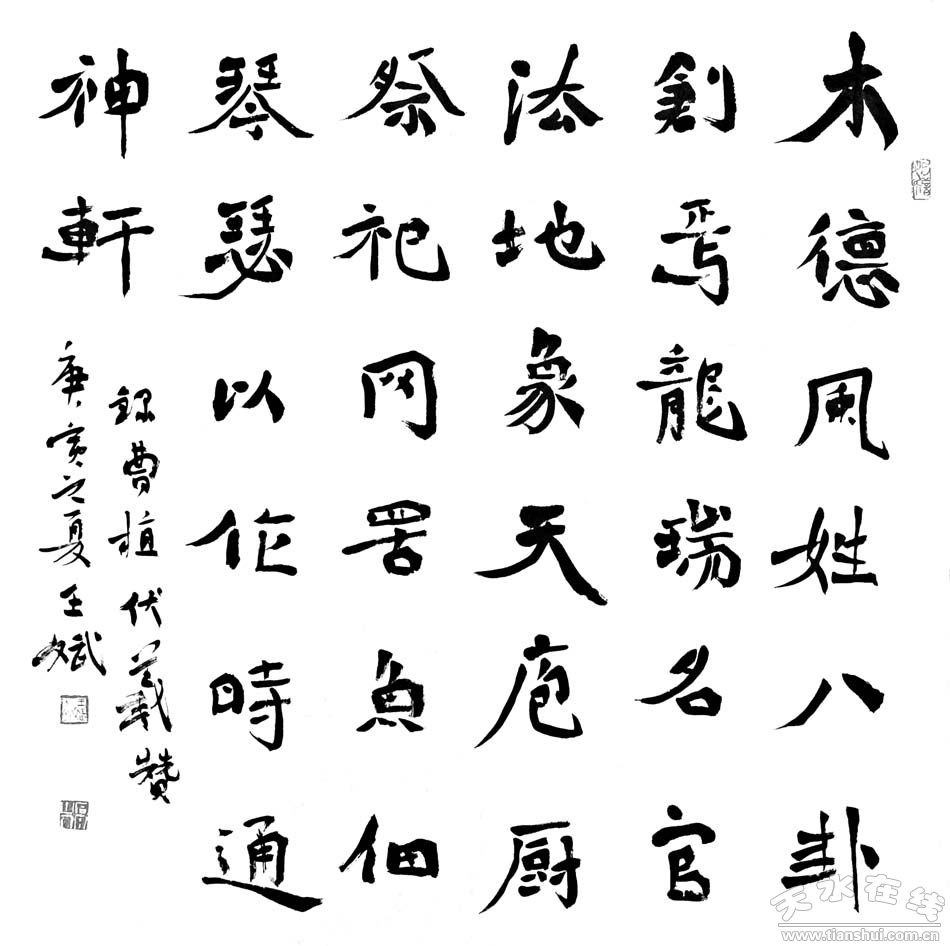 木德風姓八卦
創焉龍瑞名官
法地象天庖厨
祭祀网罟魚佃
琴瑟以作時通
神軒
録曹植伏羲贊
庚寅之夏王斌
天水在线
www.tianshui.com.cn